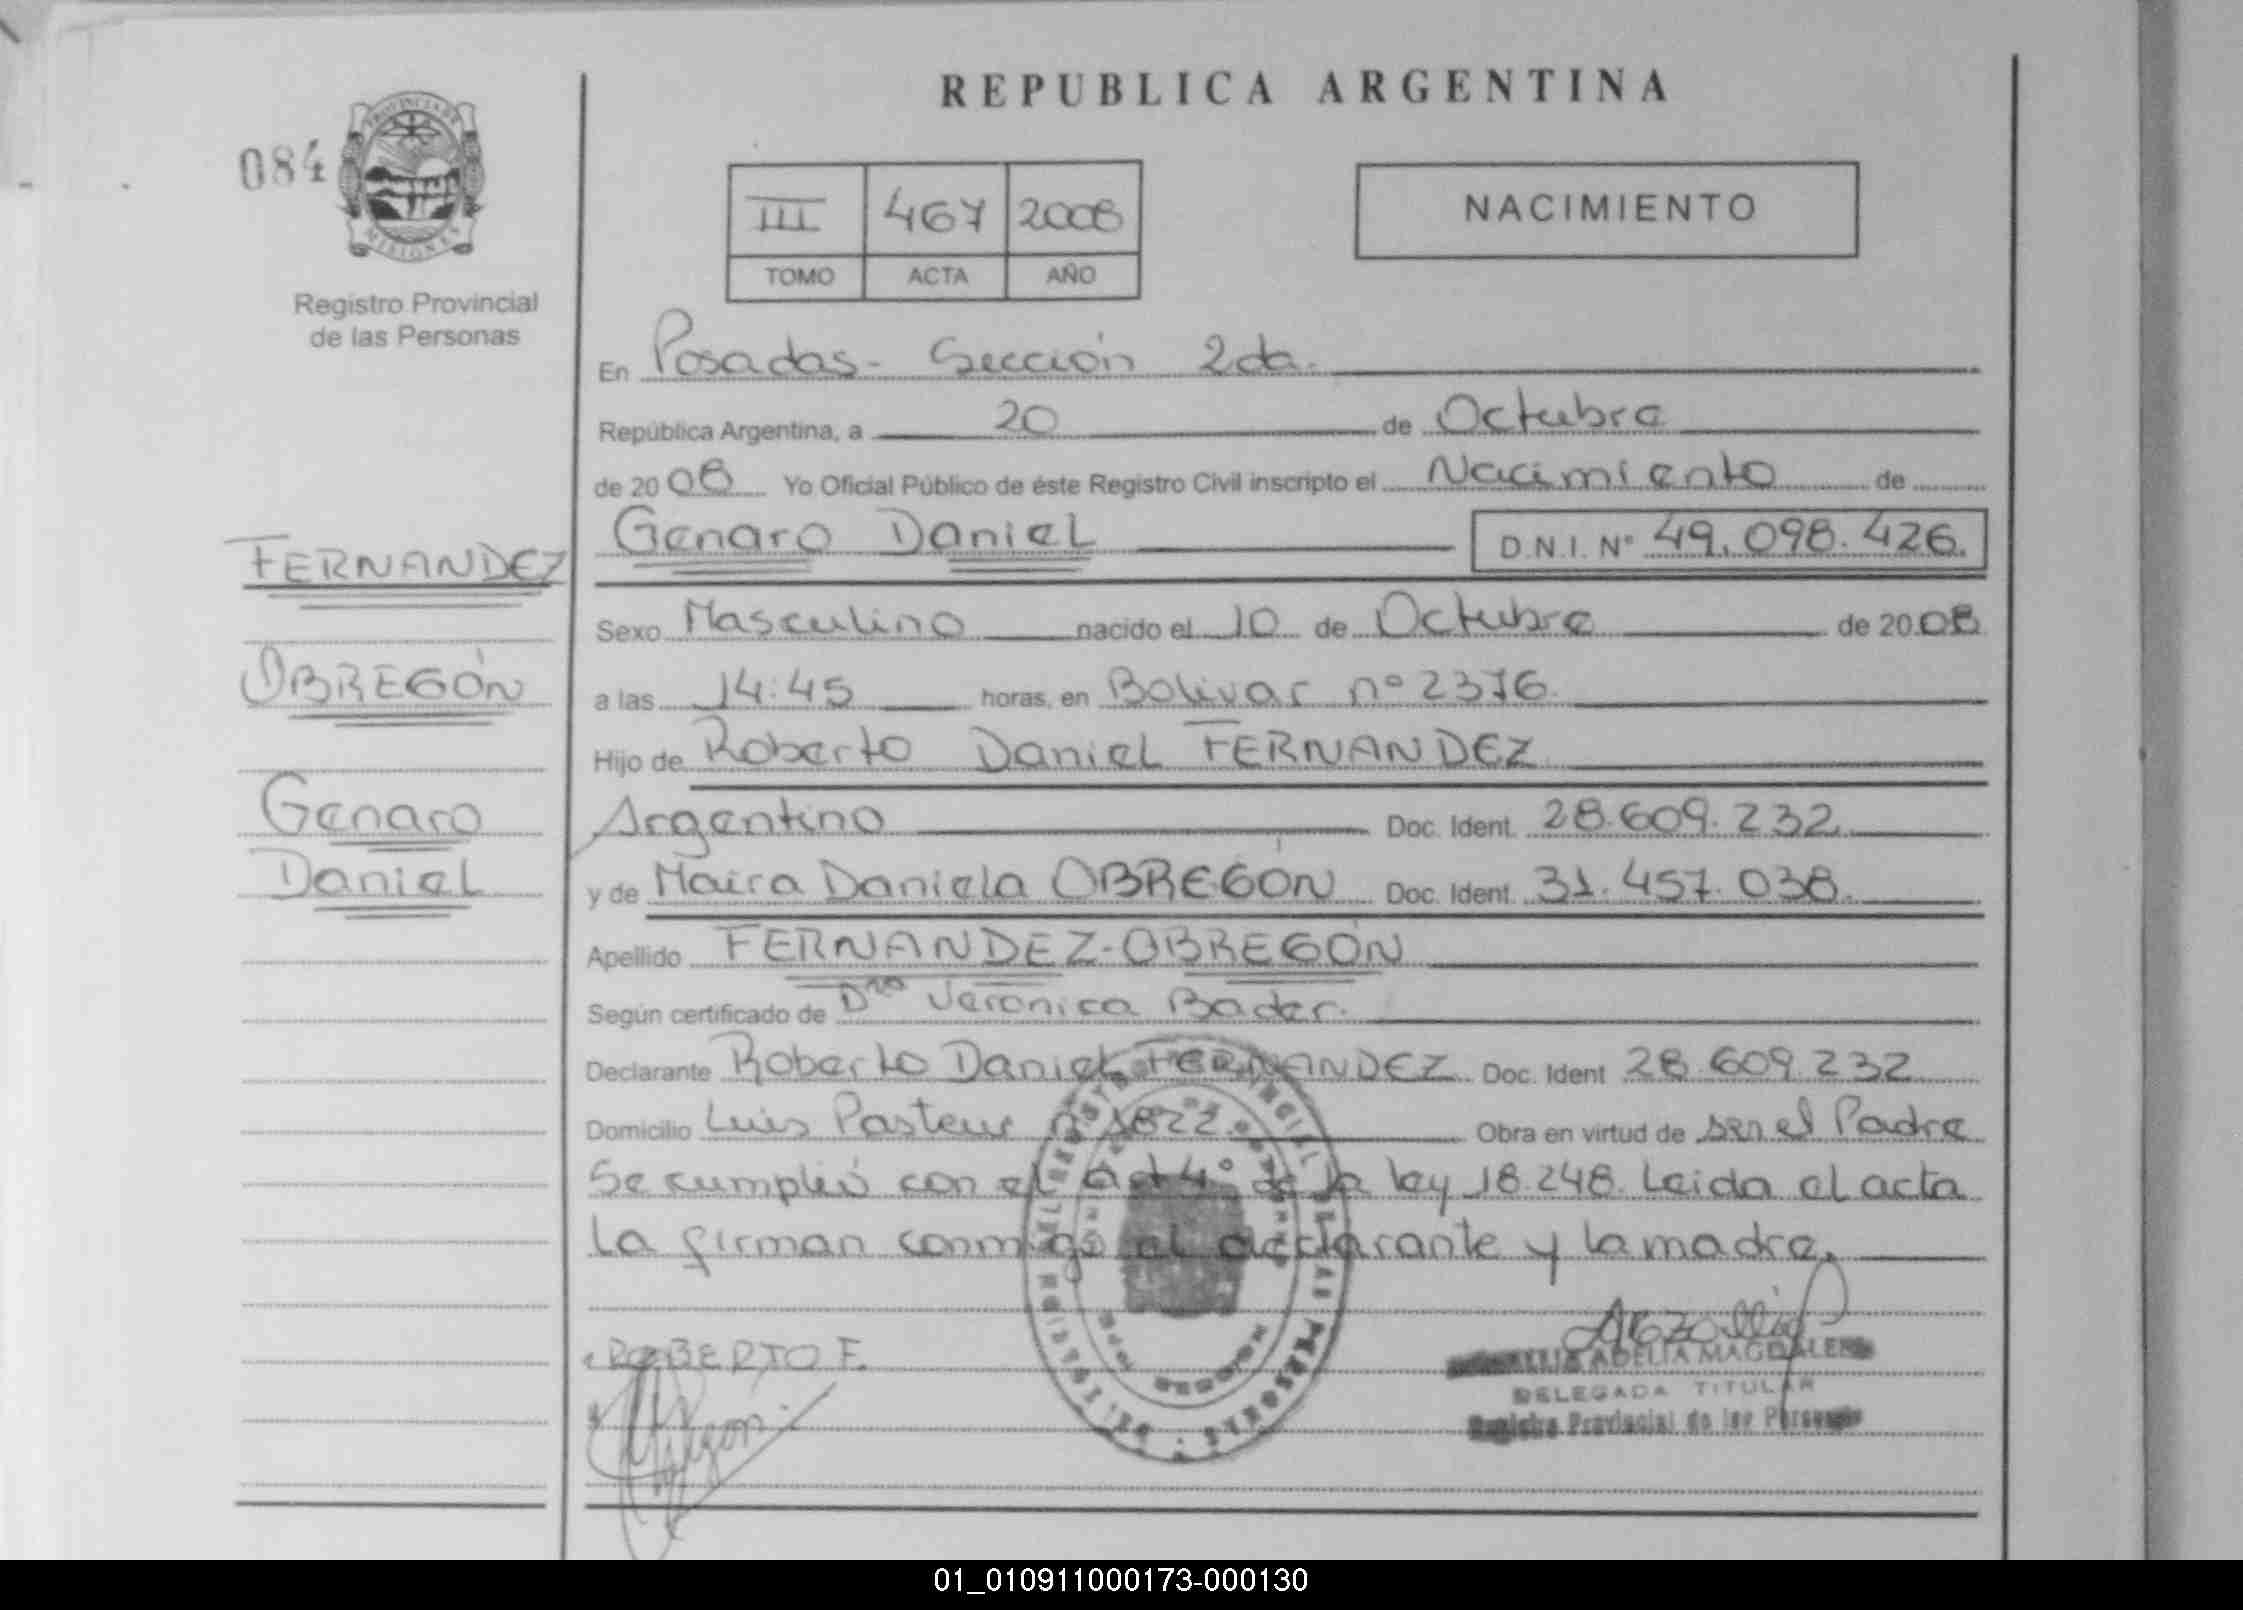 REPUBLICA ARGENTINA
084
PROVINCIA DE
MISIONES
Registro Provincial
de las Personas
III 467 2008
TOMO ACTA AÑO
NACIMIENTO
En Posadas - Sección 2da.
República Argentina, a 20 de Octubre
de 2008 Yo Oficial Público de éste Registro Civil inscripto el Nacimiento de
Genaro Daniel D.N.I. Nº 49.098.426.
FERNANDEZ
OBREGÓN
Genaro
Daniel
Sexo Masculino nacido el 10 de Octubre de 2008
a las 14:45 horas, en Bolivar nº 2376.
Hijo de Roberto Daniel FERNANDEZ
Argentino Doc. Ident. 28.609.232
y de Maira Daniela OBREGÓN Doc. Ident. 31.457.038.
Apellido FERNANDEZ-OBREGÓN
Según certificado de Dra Veronica Bader.
Declarante Roberto Daniel FERNANDEZ Doc. Ident 28.609.232
Domicilio Luis Pasteur nº 1822. Obra en virtud de ser el Padre
Se cumplió con el art 4º de la ley 18.248. Leida el acta
la firman conmigo el declarante y la madre.
ROBERTO F.
ADELIA MAGDALENA
DELEGADA TITULAR
Registro Provincial de las Personas
01_010911000173-000130